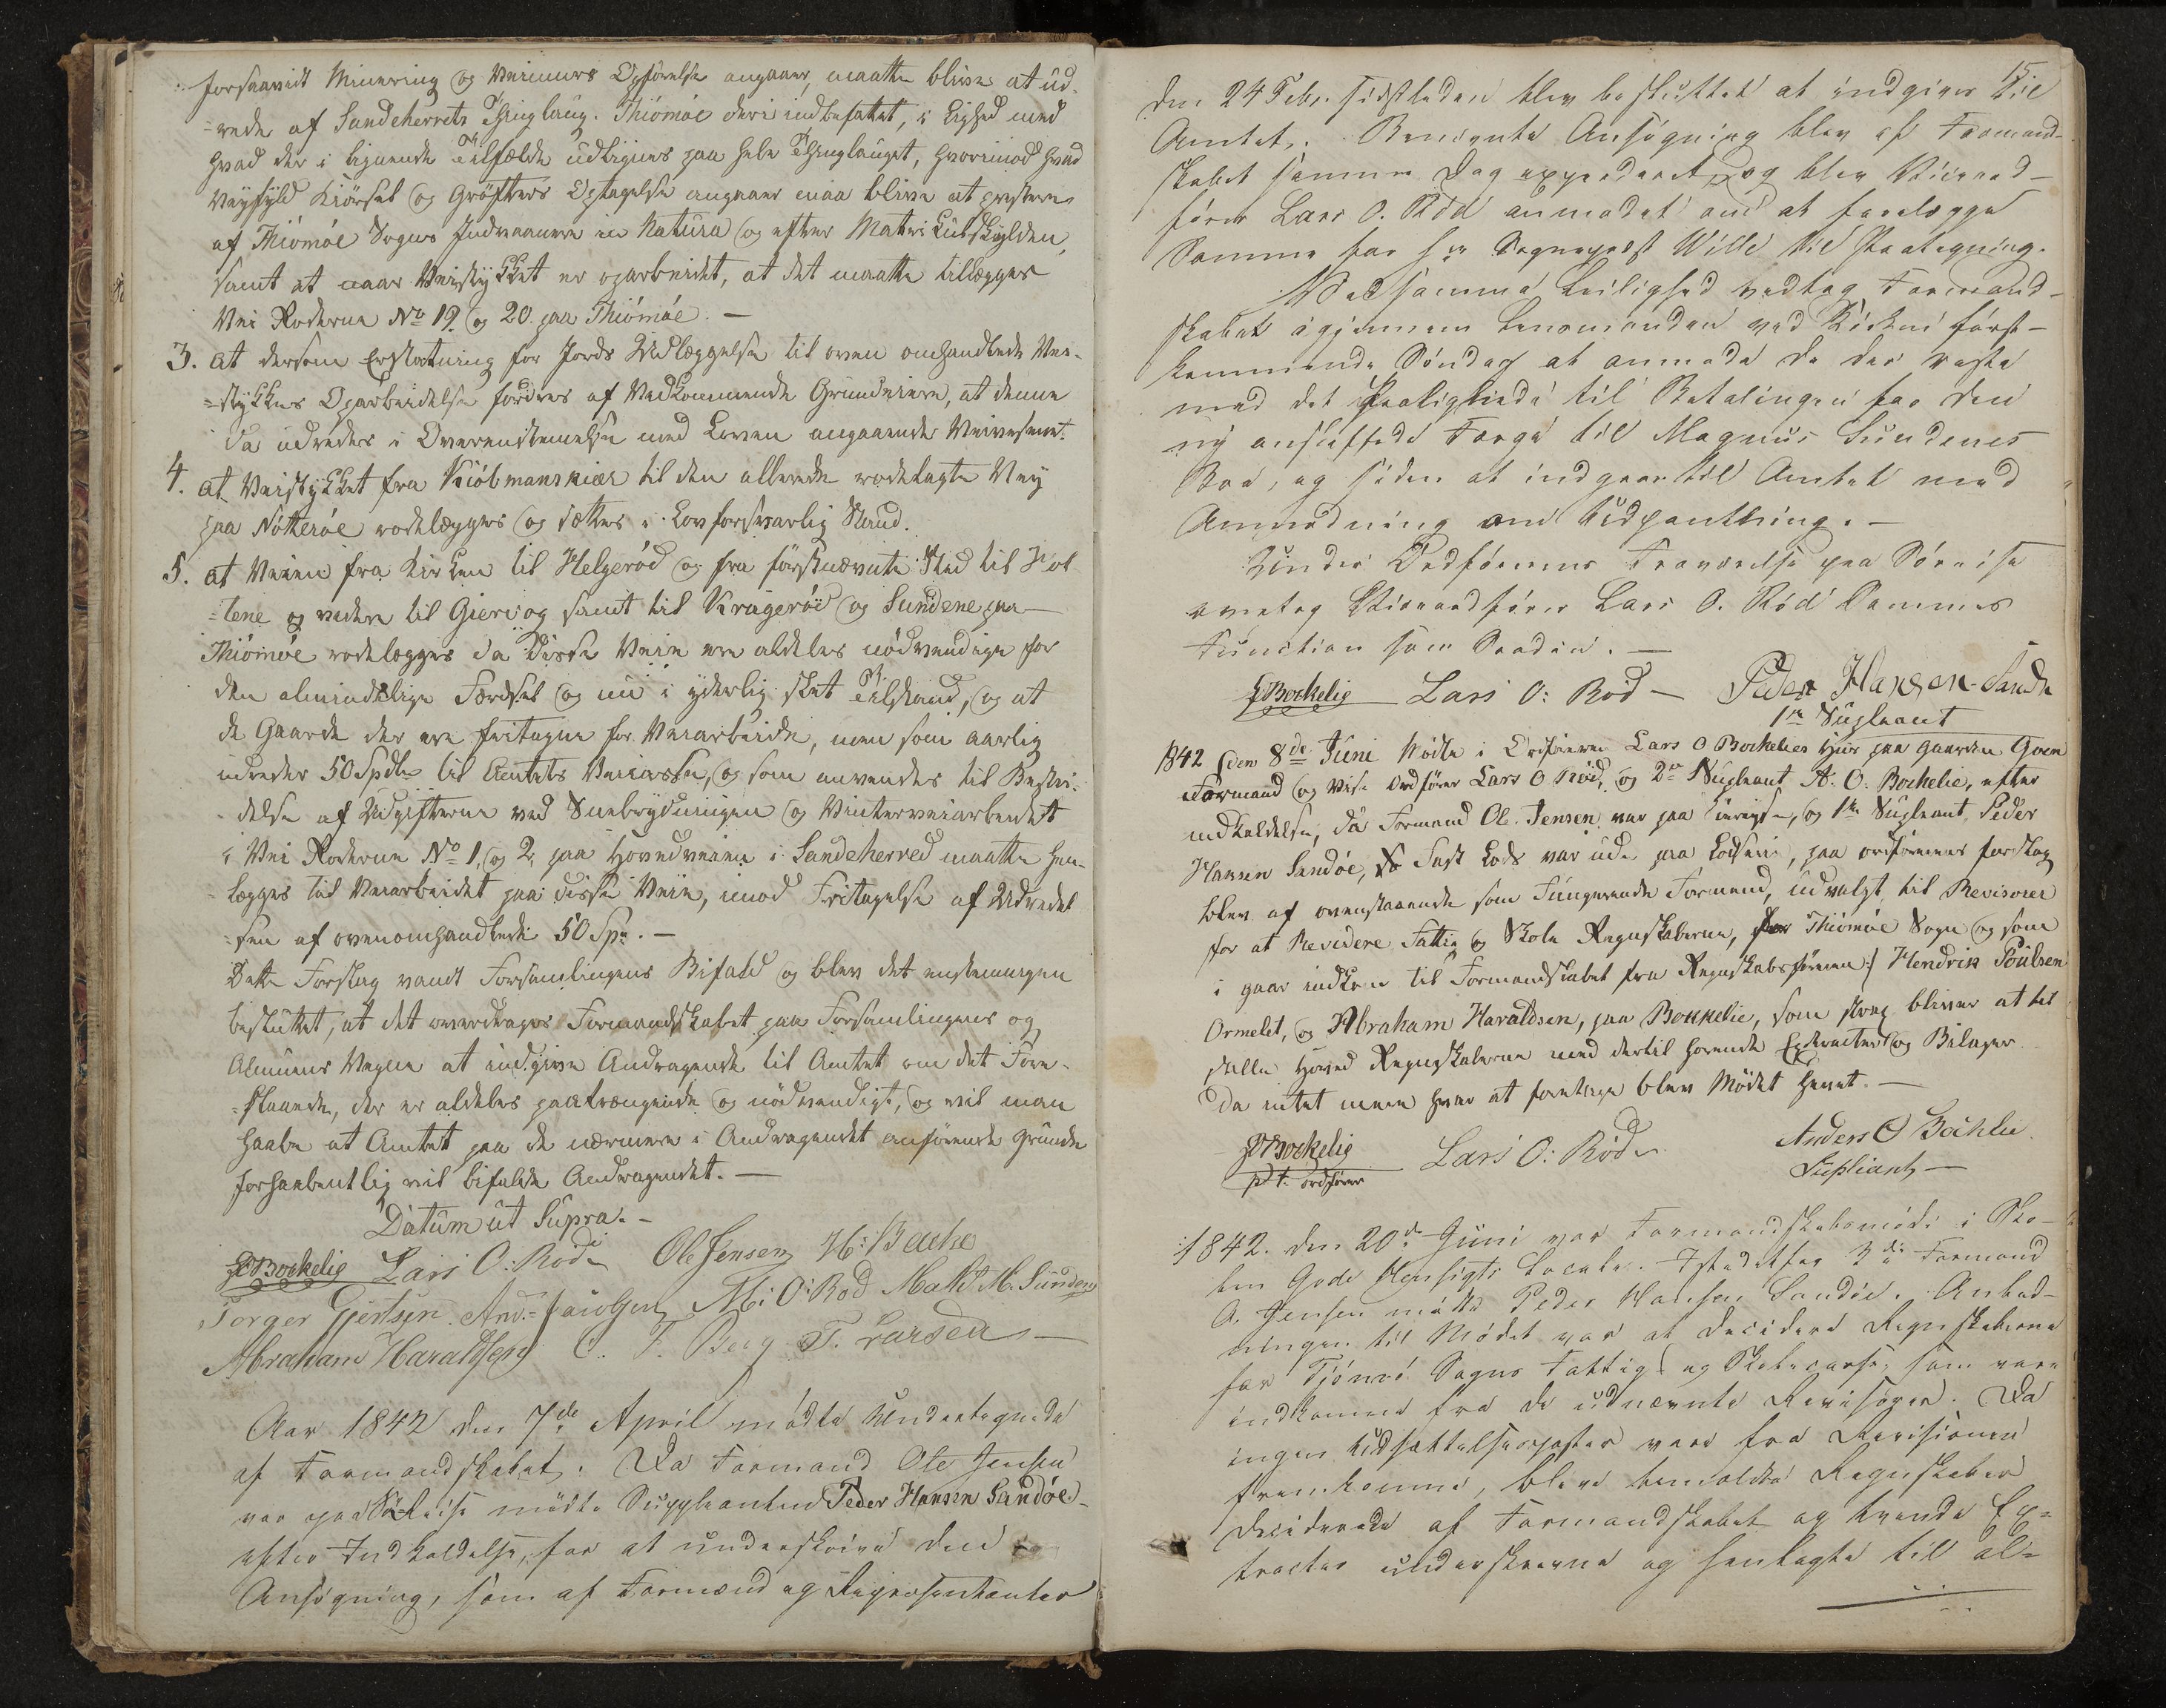 forsaavidt Minering og Veimurs Opførelse angaaer, maatte blive at ud-
=rede af Sandeherrets Thinglaug. Thiómóe deri indbefattet, i Lighed med
hvad der i lignende Tilfælde udlignes paa hele Thinglauget, hvorimod hvad
Veyfyld Kiørsel og Grøfters Optagelse angaaer maa blive at præstere
af Thiómóe Sogns Indvaanere in Natura og efter Matriculskylden,
samt at naar Veistykket er oparbeidet, at det maatte tillægges
Vei Roderne No 19. og 20. paa Thiómóe. —
3. at dersom Erstatning for Jords Udlæggelse til oven omhandlede Vei-
=stykkes Oparbeidelse fordres af Vedkommende Grundeiere, at denne
da udredes i Overenstemmelse med Loven angaaende Veivesenet.
4. at Veistykket fra Kiøbmanskiær til den allerede rodelagte Vey
paa Nøtterøe rodelægges og sættes i Lovforsvarlig Stand.
5. at Veien fra Kirken til Helgerød og fra førstnævnte Sted til Hol
=tene og videre til Gierv og samt til Kragerøe og Sundene paa
Thiómóe rodelægges da disse Veie ere aldeles nödvendige for
den almindelige Færdsel og nu i yderlig slet Tilstand, og at
de Gaarde der ere fritagne for Veiarbeide, men som aarlig
udreder 50 Spdlr til Amtets Veicasse, og som anvendes til Bestri-
delse af Udgifterne ved Sneebrydningen og Vinterveiarbeidet
i Vei Roderne No 1. og 2, paa Hovedveien i Sandeherred maatte hen-
lægges til Veiarbeidet paa disse Veie, imod Fritagelse af Udredel
=sen af ovenomhandlede 50 Spd. —
Dette Forslag vandt Forsamlingens Bifald og blev det enstemmigen
besluttet, at det overdrages Formandskabet paa Forsamlingens og
Almuens Vegne at indgive Andragende til Amtet om det Fore-
=staaende, der er aldeles paatrængende og nödvendigt, og vil man
haabe at Amtet paa de nærmere i Andragendet anførende Grunde
forhaabentlig vil bifalde Andragendet. —
Datum ut Supra. —
Bockelie Lars O: Röd Ole Jensen H: Bache
Torger Gjertsen. And: Paulsen M: O: Röd Math M. Sundene
Abraham Haraldsen C. T. Berg T. Larsen —
Aar 1842 den 7de April mödte Undertegnede
af Formandskabet. Da Formand Ole Jensen
var paa Søreise mödte Suppleanten Peder Hansen Sandóe -
efter Indkaldelse, for at underskrive den
Ansögning, som af Formænd og Repræsentanter
15.
den 24 Febr. sidstleden blev besluttet at indgives til
Amtet. Benævnte Ansögning blev af Formand-
skabet samme Dag expederet, og blev Viceord-
förer Lars O. Röd anmodet om at forelægge
Samme for Hr Sogneprest Wille til Paategning.
Ved samme Leilighed vedtog Formand-
skabet igjennem Lensmanden ved Kirken först-
kommende Söndag at anmode de der reste
med det paalignede til Betalingen for den
ny anskaffede Færge til Magnus Sundenes
Boe, og siden at indgaae til Amtet med
Anmodning om Udpanthning. —
Under Ordförerens Fraværelse paa Söreise
overtog Viceordförer Lars O. Röd Sammes
Function som Saadan. —
Bockelie Lars O: Röd — Peder Hansen Sandö
1ste Supleant
1842 den 8de Juni Mødte i Ordføreren Lars O Bockelies Huus paa gaarden Goen
Formand og Vise Ordfører Lars O Röd, og 2den Supleant A. O. Bockelie, efter
indkaldelse, da Formand Ol. Jensen var paa Søreise, og 1ste Supleant Peder
Hansen Sandøe, Fast Lods var ude paa Lodseri, paa ordførerens forslag
blev af ovenstaaende som Fungerende Formand, udvalgt til Revisorer
for at Revidere Fattig og Skole Regnskaberne, for Thiómóe Sogn og som
i gaar indkom til Formandskabet fra Regnskabsføreren / Hendrik Poulsen
Ormelet, og Abraham Haraldsen, paa Bockelie, som strax bliver at til
stille Hoved Regnskaberne med dertil hørende Exstracter og Bilager.
Da intet mere hver at foretage blev Mødet hævet. —
Bockelie Lars O: Röd Anders O Bockelie
p t. ordfører Supliant —
1842. den 20de Juni var Formandskabsmöde i Sko-
len Gode Hensigts Locale. Istedetfor 3die Formand
O. Jensen mödte Peder Hansen Sandöe. Anled-
ningen til Mödet var at decidere Regnskaberne
for Tjömö Sogns Fattig og Skolecasse, som vare
indkomne fra de udnævnte Revisorer. Da
ingen Udsættelsesposter vare fra Revisionen
fremkomne, bleve bemeldte Regnskaber
deciderede af Formandskabet og tvende Ex-
tracter underskrevne og henlagte til al-